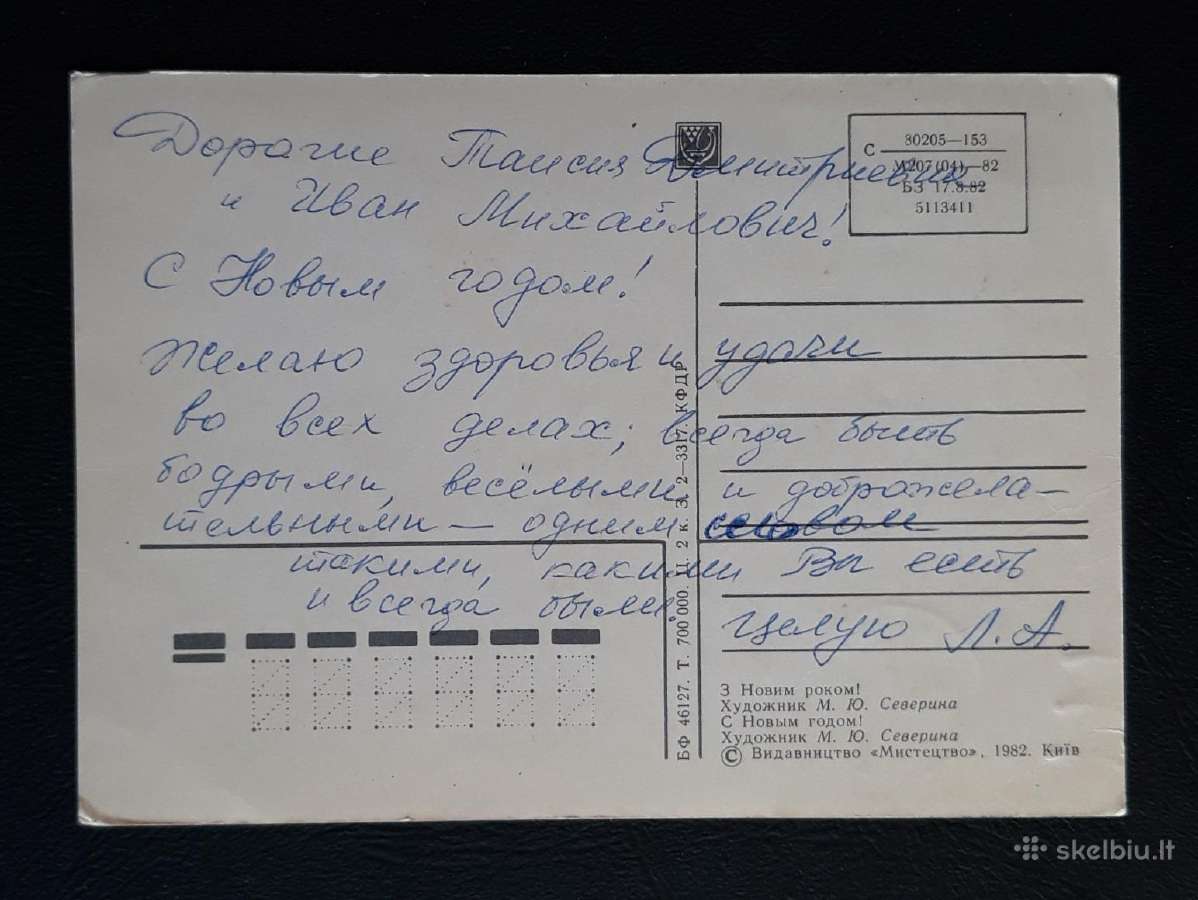 Дорогие Таисия Дмитриевна
и Иван Михайлович!
С Новым годом!
Желаю здоровья и удачи
во всех делах; всегда быть
бодрыми, весёлыми и доброжела-
тельными — одним словом
такими, какими Вы есть
и всегда были.
Целую Л. А.
С 80205—153
М207(04)—82
БЗ 17.8.82
5113411
БФ 46127. Т. 700 000. Ц. 2 к. З. 2—3317. КФДР
З Новим роком!
Художник М. Ю. Северина
С Новым годом!
Художник М. Ю. Северина
© Видавництво «Мистецтво», 1982. Київ
skelbiu.lt